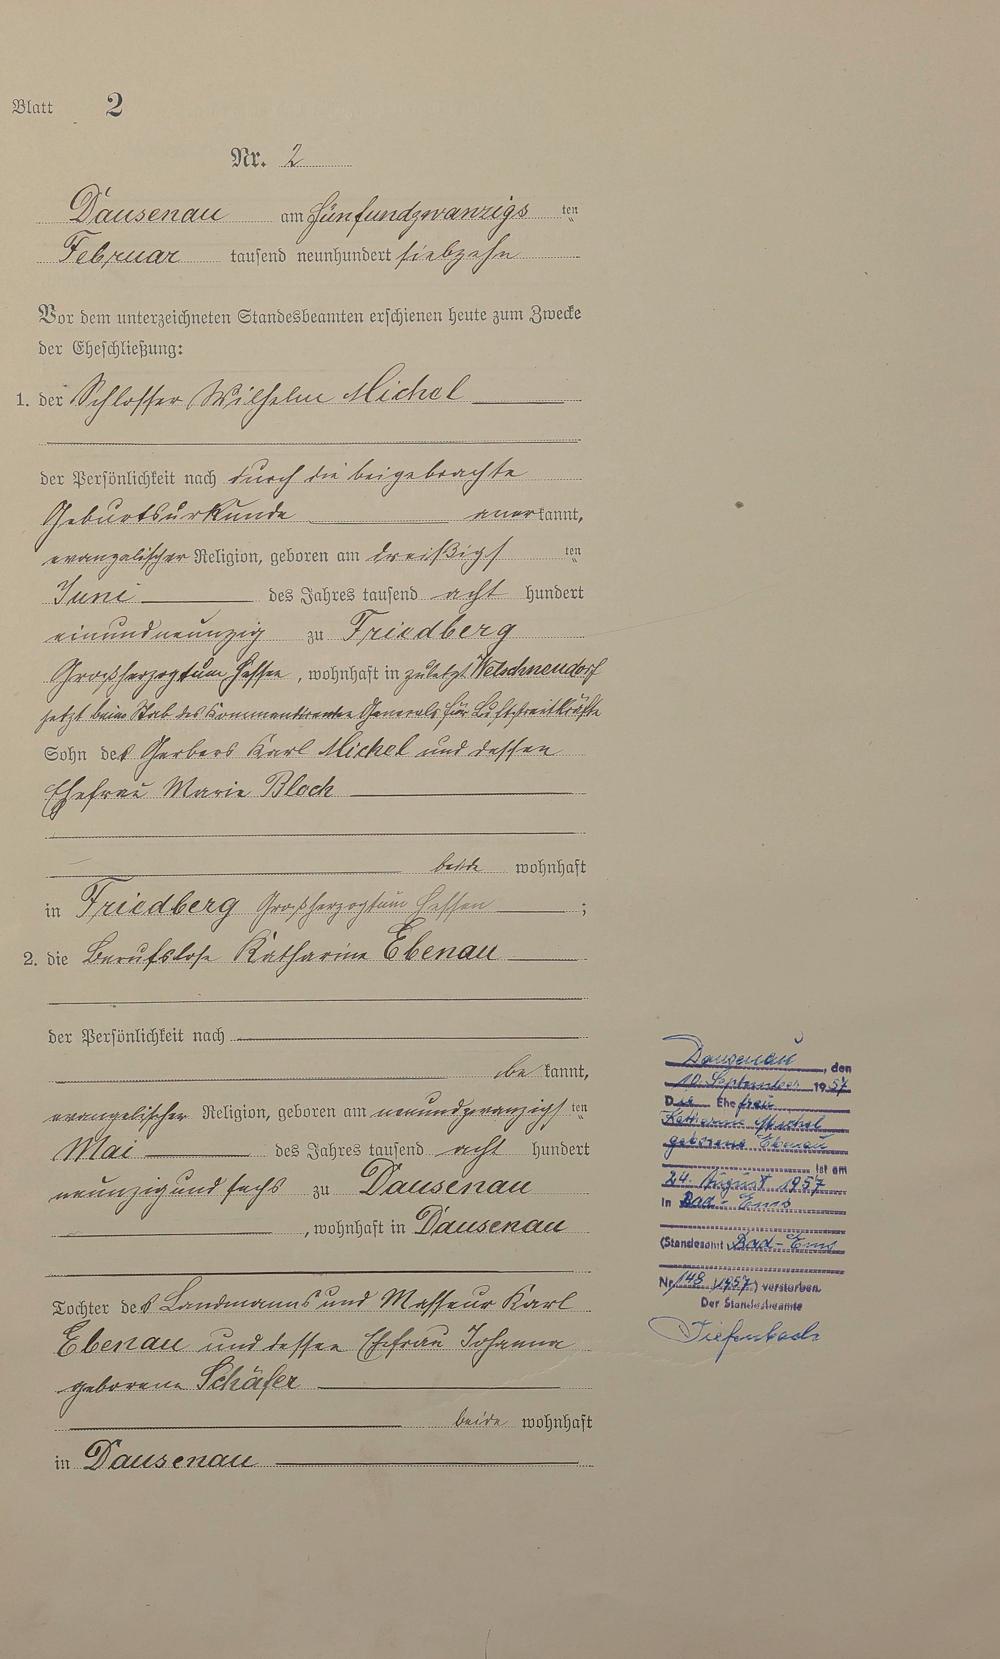 Blatt 2
Nr. 2
Dausenau am fünfundzwanzigs ten
Februar tausend neunhundert siebzehn
Vor dem unterzeichneten Standesbeamten erschienen heute zum Zwecke
der Eheschließung:
1. der Schlosser Wilhelm Michel
der Persönlichkeit nach durch die beigebrachte
Geburtsurkunde anerkannt,
evangelischer Religion, geboren am dreißigs ten
Juni des Jahres tausend acht hundert
einundneunzig zu Friedberg
Großherzogtum Hessen, wohnhaft in zuletzt Welschneudorf
jetzt beim Stab des Kommandierenden Generals für Luftstreitkräfte
Sohn des Gerbers Karl Michel und dessen
Ehefrau Marie Bloch
beide wohnhaft
in Friedberg Großherzogtum Hessen ;
2. die Berufslose Katharine Ebenau
der Persönlichkeit nach
be kannt,
evangelischer Religion, geboren am neunundzwanzigs ten
Mai des Jahres tausend acht hundert
neunzig und sechs zu Dausenau
, wohnhaft in Dausenau
Tochter des Landmanns und Masseur Karl
Ebenau und dessen Ehefrau Johanna
geborene Schäfer
beide wohnhaft
in Dausenau
Dausenau, den
10. September 1957
Die Ehefrau
Katharine Michel
geborene Ebenau
ist am
24. August 1957
in Bad-Ems
(Standesamt Bad-Ems
Nr 148/1957) verstorben.
Der Standesbeamte
Tiefenbach